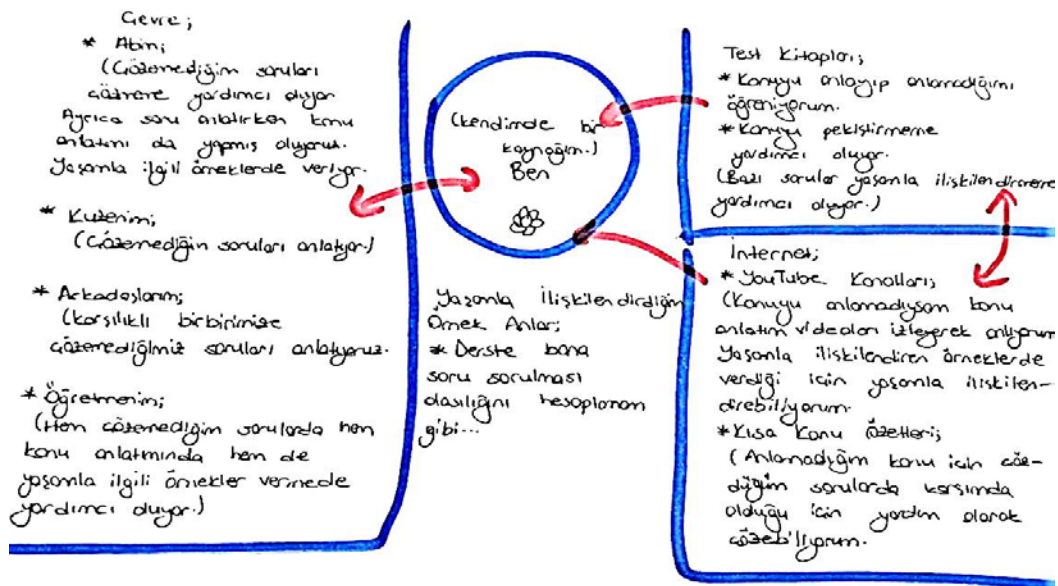 Çevre;
* Abim;
(Çözemediğim soruları
çözmeme yardımcı oluyor.
Ayrıca soru anlatırken konu
anlatımı da yapmış oluyoruz.
Yaşamla ilgili örneklerde veriyor.
* Kuzenim;
(Çözemediğim soruları anlatıyor.)
* Arkadaşlarım;
(karşılıklı birbirimize
çözemediğimiz soruları anlatıyoruz.
* Öğretmenim;
(Hem çözemediğim sorularda hem
konu anlatımında hem de
yaşamla ilgili örnekler vermede
yardımcı oluyor.)
(kendimde bir
kaynağım.)
Ben
Yaşamla İlişkilendirdiğim
Örnek Anlar;
* Derste bana
soru sorulması
olasılığını hesaplamam
gibi...
Test Kitapları;
* Konuyu anlayıp anlamadığımı
öğreniyorum.
* Konuyu pekiştirmeme
yardımcı oluyor.
(Bazı sorular yaşamla ilişkilendirmeme
yardımcı oluyor.)
İnternet;
* YouTube Kanalları;
(Konuyu anlamadıysam konu
anlatım videoları izleyerek anlıyorum
Yaşamla ilişkilendiren örneklerde
verdiği için yaşamla ilişkilen-
direbiliyorum.
* Kısa Konu Özetleri;
(Anlamadığım konu için çöz-
düğüm sorularda karşımda
olduğu için yardım alarak
çözebiliyorum.